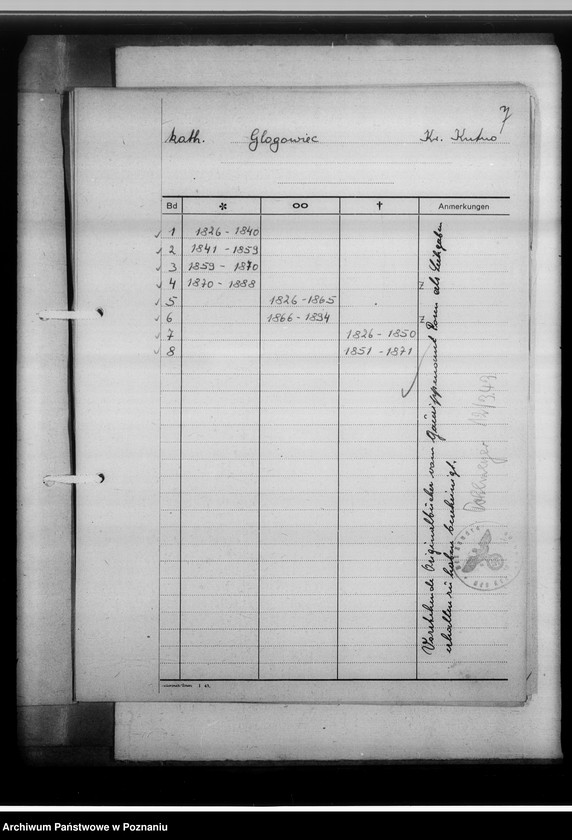 7
kath. Glogowiec Kr. Kutno
Bd * ∞ † Anmerkungen
1 1826 - 1840
2 1841 - 1859
3 1859 - 1870
4 1870 - 1888
5 1826 - 1865
6 1866 - 1894
7 1826 - 1850
8 1851 - 1871
Vorstehende Originalbücher vom Gausippenamt Posen als Leihgaben
erhalten zu haben bescheinigt.
Archiwum Państwowe w Poznaniu